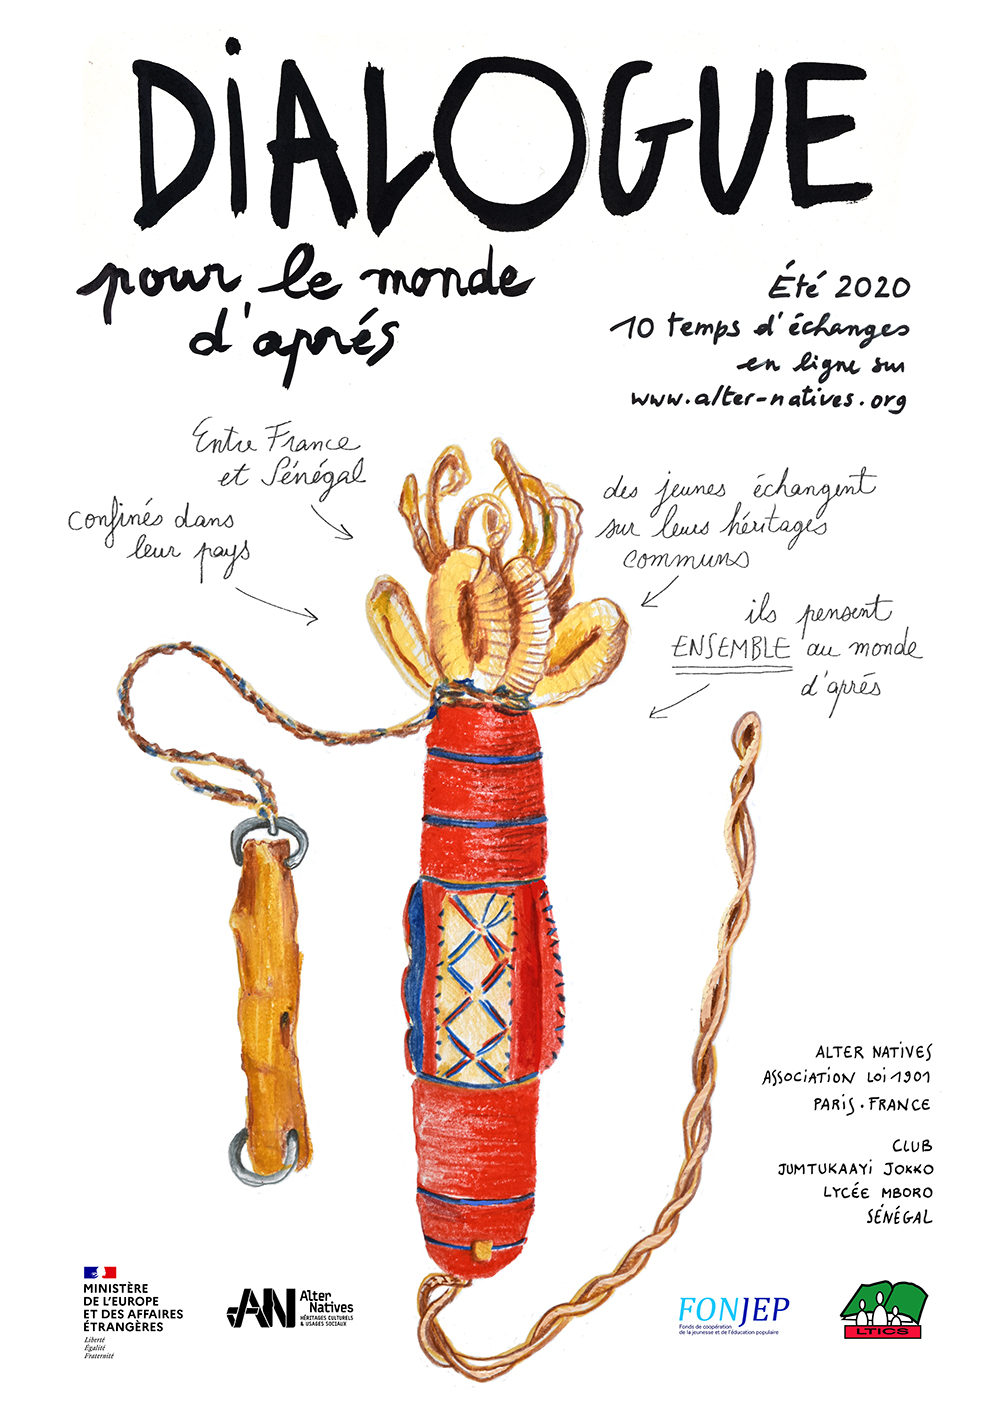 DiALOGUE
pour le monde
d'après
Été 2020
10 temps d'échanges
en ligne sur
www.alter-natives.org
Entre France
et Sénégal
confinés dans
leur pays
des jeunes échangent
sur leurs héritages
communs
ils pensent
ENSEMBLE au monde
d'après
ALTER NATIVES
ASSOCIATION LOi 1901
PARiS. FRANCE
CLUB
JUMTUKAAYi JOKKO
LYCÉE MBORO
SÉNÉGAL
MINISTÈRE
DE L'EUROPE
ET DES AFFAIRES
ÉTRANGÈRES
Liberté
Égalité
Fraternité
AN Alter
Natives
HÉRITAGES CULTURELS
& USAGES SOCIAUX
FONJEP
Fonds de coopération
de la jeunesse et de l'éducation populaire
LTICS